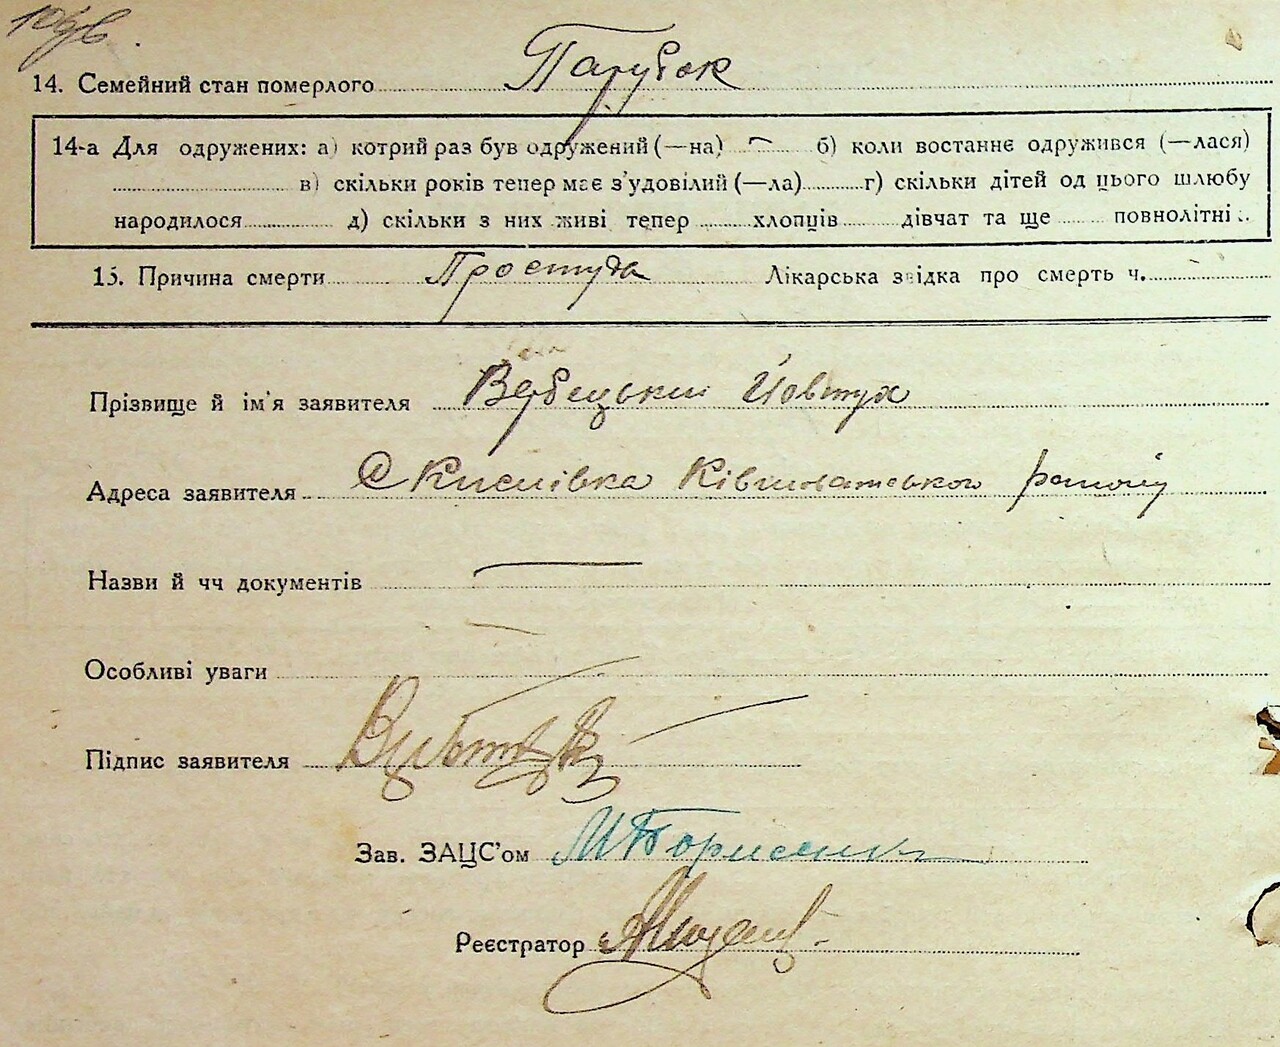 14. Семейний стан померлого Парубок
14-а Для одружених: а) котрий раз був одружений (—на) — б) коли востаннє одружився (—лася)
в) скільки років тепер має з'удовілий (—ла) г) скільки дітей од цього шлюбу
народилося д) скільки з них живі тепер хлопців дівчат та ще повнолітні
15. Причина смерти Простуда Лікарська звідка про смерть ч.
Прізвище й ім'я заявителя Вербецький Йовтух
Адреса заявителя С Кислівка Ківшоватського району
Назви й чч документів —
Особливі уваги
Підпис заявителя
Зав. ЗАЦС'ом М Борисенко
Реєстратор